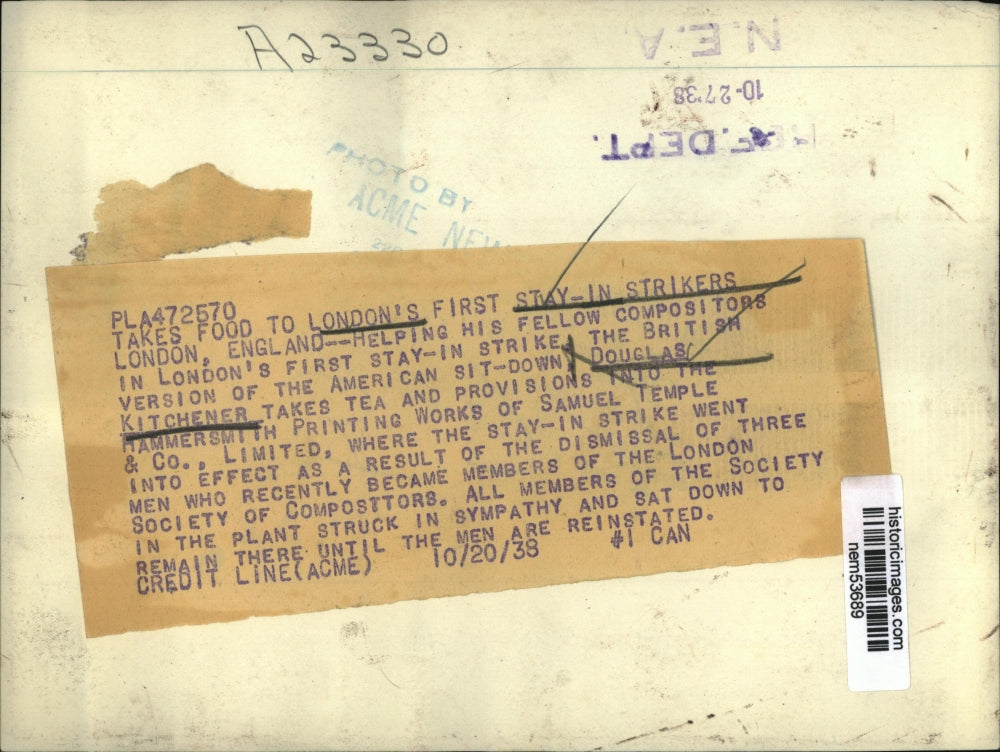 A23330
N.E.A.
10-27-38
REF. DEPT.
PHOTO BY
ACME
PLA472570
TAKES FOOD TO LONDON'S FIRST STAY-IN STRIKERS
LONDON, ENGLAND--HELPING HIS FELLOW COMPOSITORS
IN LONDON'S FIRST STAY-IN STRIKE, THE BRITISH
VERSION OF THE AMERICAN SIT-DOWN, DOUGLAS
KITCHENER TAKES TEA AND PROVISIONS INTO THE
HAMMERSMITH PRINTING WORKS OF SAMUEL TEMPLE
& CO., LIMITED, WHERE THE STAY-IN STRIKE WENT
INTO EFFECT AS A RESULT OF THE DISMISSAL OF THREE
MEN WHO RECENTLY BECAME MEMBERS OF THE LONDON
SOCIETY OF COMPOSITORS. ALL MEMBERS OF THE SOCIETY
IN THE PLANT STRUCK IN SYMPATHY AND SAT DOWN TO
REMAIN THERE UNTIL THE MEN ARE REINSTATED.
CREDIT LINE(ACME) 10/20/38 #1 CAN
historicimages.com
nem53689